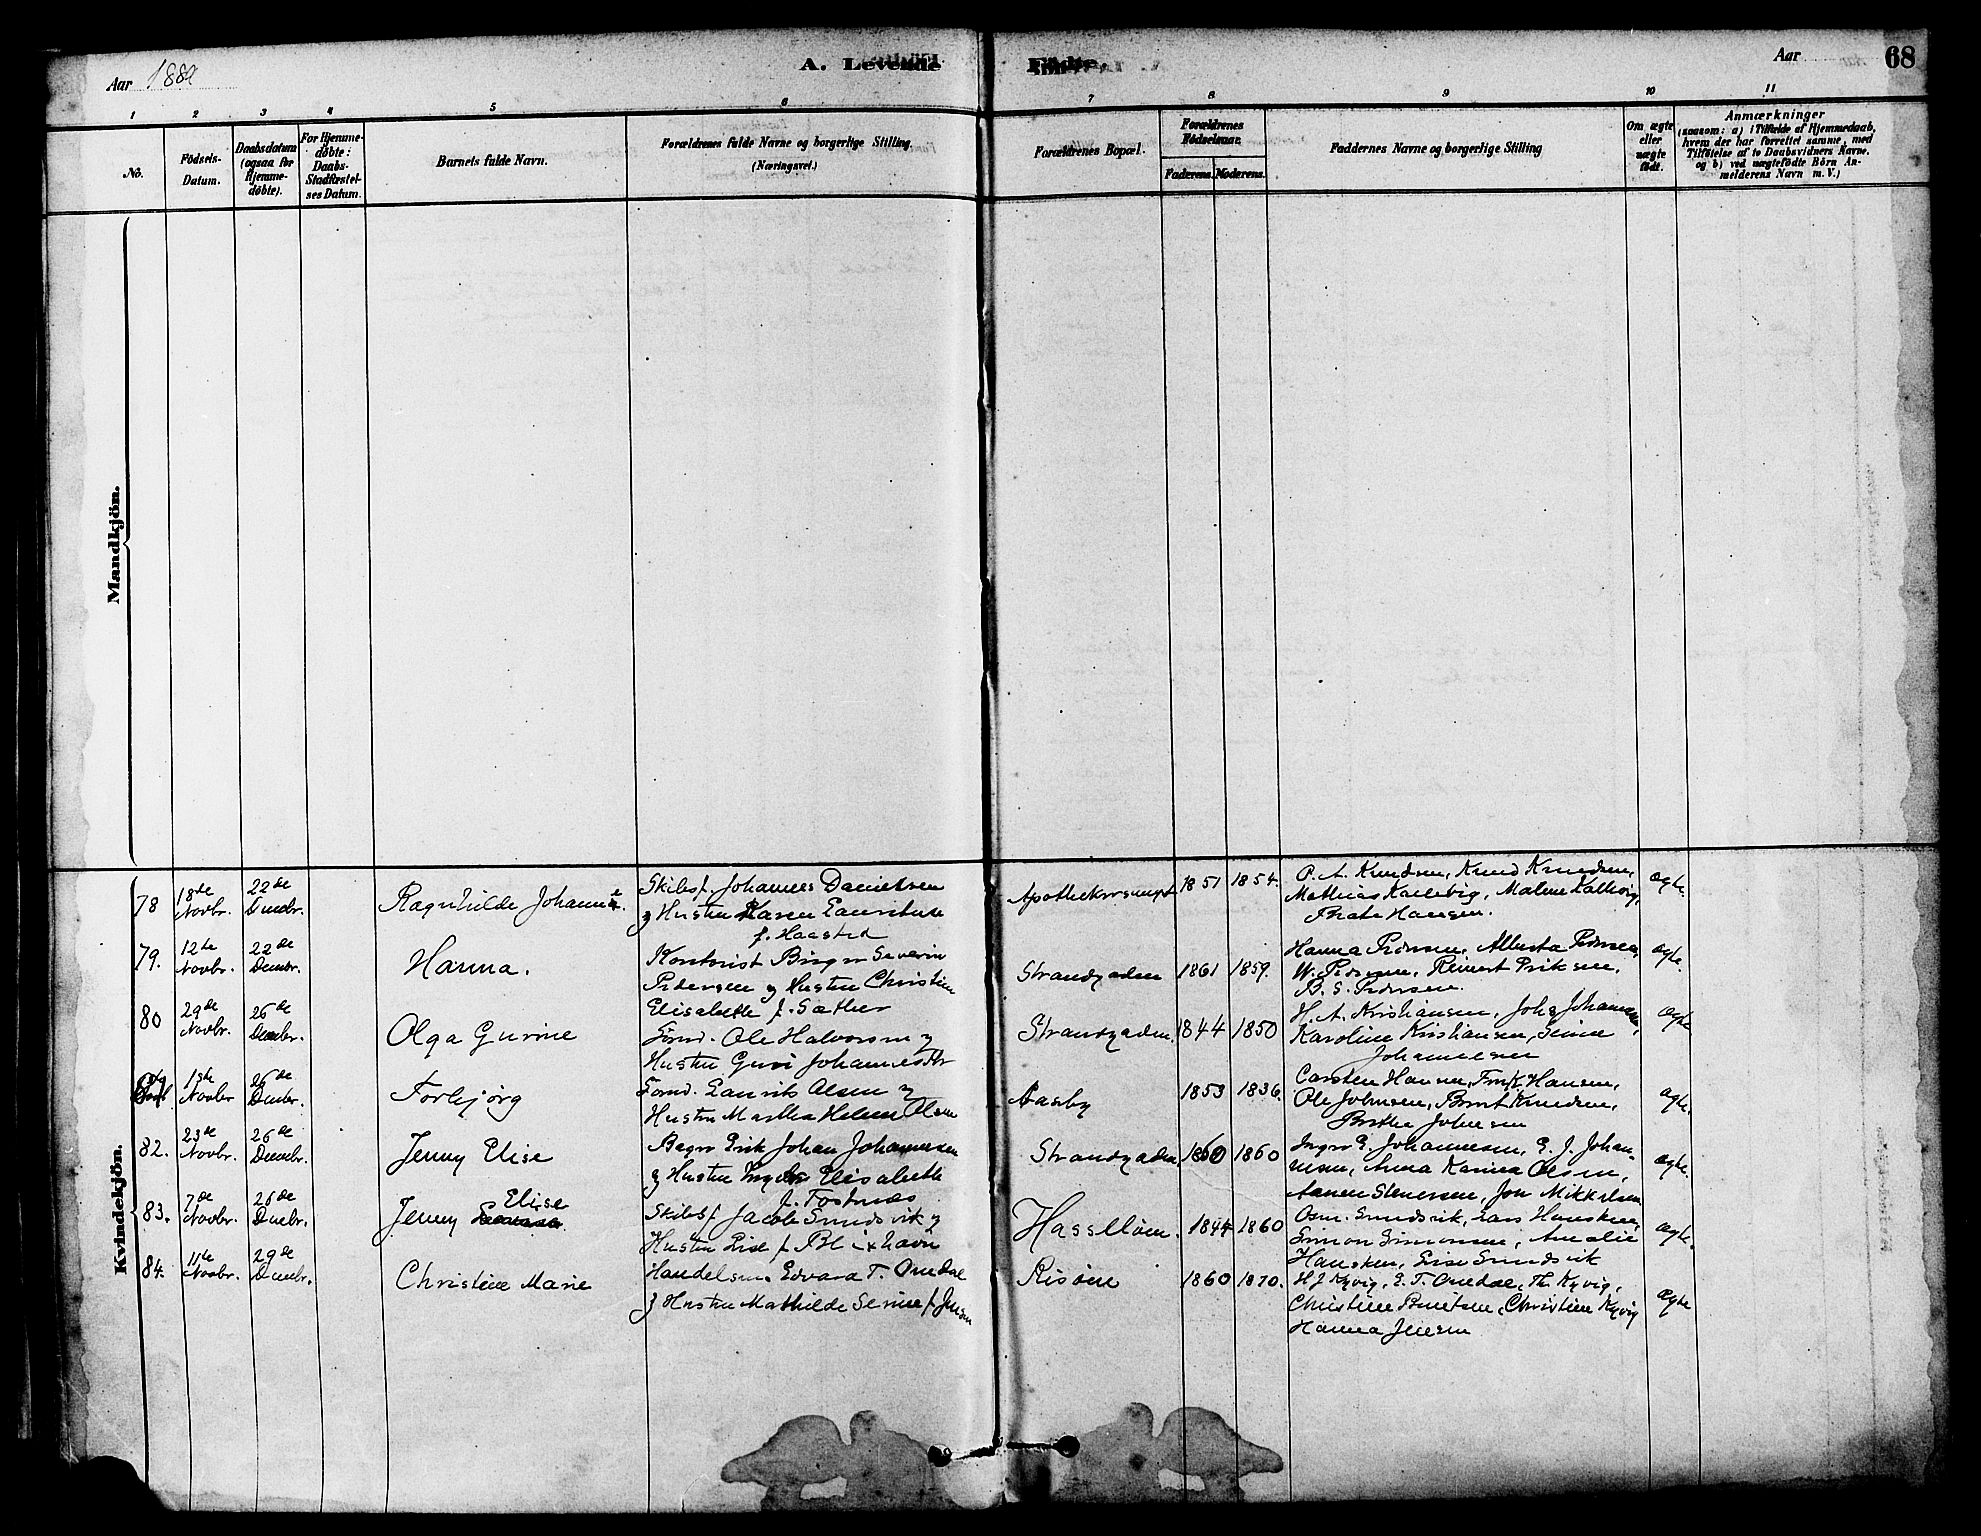 Aar 1889
A. Levende
Fødte.
Aar
68
1 2 3 4 5 6 7 8 9 10 11
No.
Födsels-
Datum.
Daabsdatum
(ogsaa for
Hjemme-
døbte).
For Hjemme-
døbte:
Daabs-
Stadfæstel-
ses Datum.
Barnets fulde Navn.
Forældrenes fulde Navne og borgerlige Stilling
(Næringsvei.)
Forældrenes Bopæl.
Forældrenes
Fødselsaar.
Faderens. Moderens.
Faddernes Navne og borgerlige Stilling
Om ægte
eller
uægte
født.
Anmærkninger
(saasom: a) i Tilfælde af Hjemmedaab,
hvem der har forrettet samme, med
Tilføielse af to Daabsvidners Navne,
og b) ved uægtefødte Börn An-
melderens Navn m. V.)
Mandkjön.
Kvindekjön.
78
18de
Novbr.
22de
Ragnhilde
Skibsf. Johannes Danielsen
og Hustru Karen
f. Haasted
1851 1854.
P. A. Knudsen, Knud Knudsen,
Mathias Kallevig, Malene Kallevig,
Hansen.
ægte.
79.
12te
Novbr.
22de
Decmbr.
Hanna.
Kontorist Birger Severin
Pedersen og Hustru Christine
Elisabeth f. Sæther
Strandgaden
1861 1859.
Hanna Pedersen, Alberta Pedersen,
W. Pedersen,
B. S. Pedersen.
ægte.
80
29de
Novbr.
26de
Decmbr.
Olga Gurine
Ole Halvorsen og
Hustru Guri Johannesdtr
Strandgaden.
1844 1850
H. A. Kristiansen, Johs Johannesen,
Karoline Kristiansen,
Johannesen
ægte
Novbr
26de
Decmbr.
Torbjørg
Olsen og
Hustru Martha Helene Olsen
Aasby
1853 1836.
Carsten Hansen, Hansen,
Ole Johnsen, Knudsen,
Johnsen
ægte.
82.
23de
Novbr.
26de
Decmbr.
Jenny Elise
Bager Erik Johan Johannesen
og Hustru Elisabeth
f. Tostnæs
Strandgaden
1860 1860
Johannesen, E. J. Johan-
nesen, Anna Karina Olsen,
Stenersen, Jon Mikkelsen
ægte.
83.
7de
Novbr.
26de
Decbr.
Jenny Elise
Skibsf. Jacob Sundsvik og
Hustru Lise f. Blixhavn
Hasseløen.
1844 1860
Osm. Sundsvik, Lars Hansken,
Simon Simonsen, Amalie
Hansken, Lise Sundsvik
ægte.
84.
11te
Novbr.
29de
Decmbr.
Christine Marie
Handelsm. Edvard T. Omdal
og Hustru Mathilde Serine f. Jensen
Risøen
1860 1870.
H J Kyvig, E. T. Omdal, Th. Kyvig,
Christine Berntsen, Christine Kyvig
Hanna Jensen
ægte